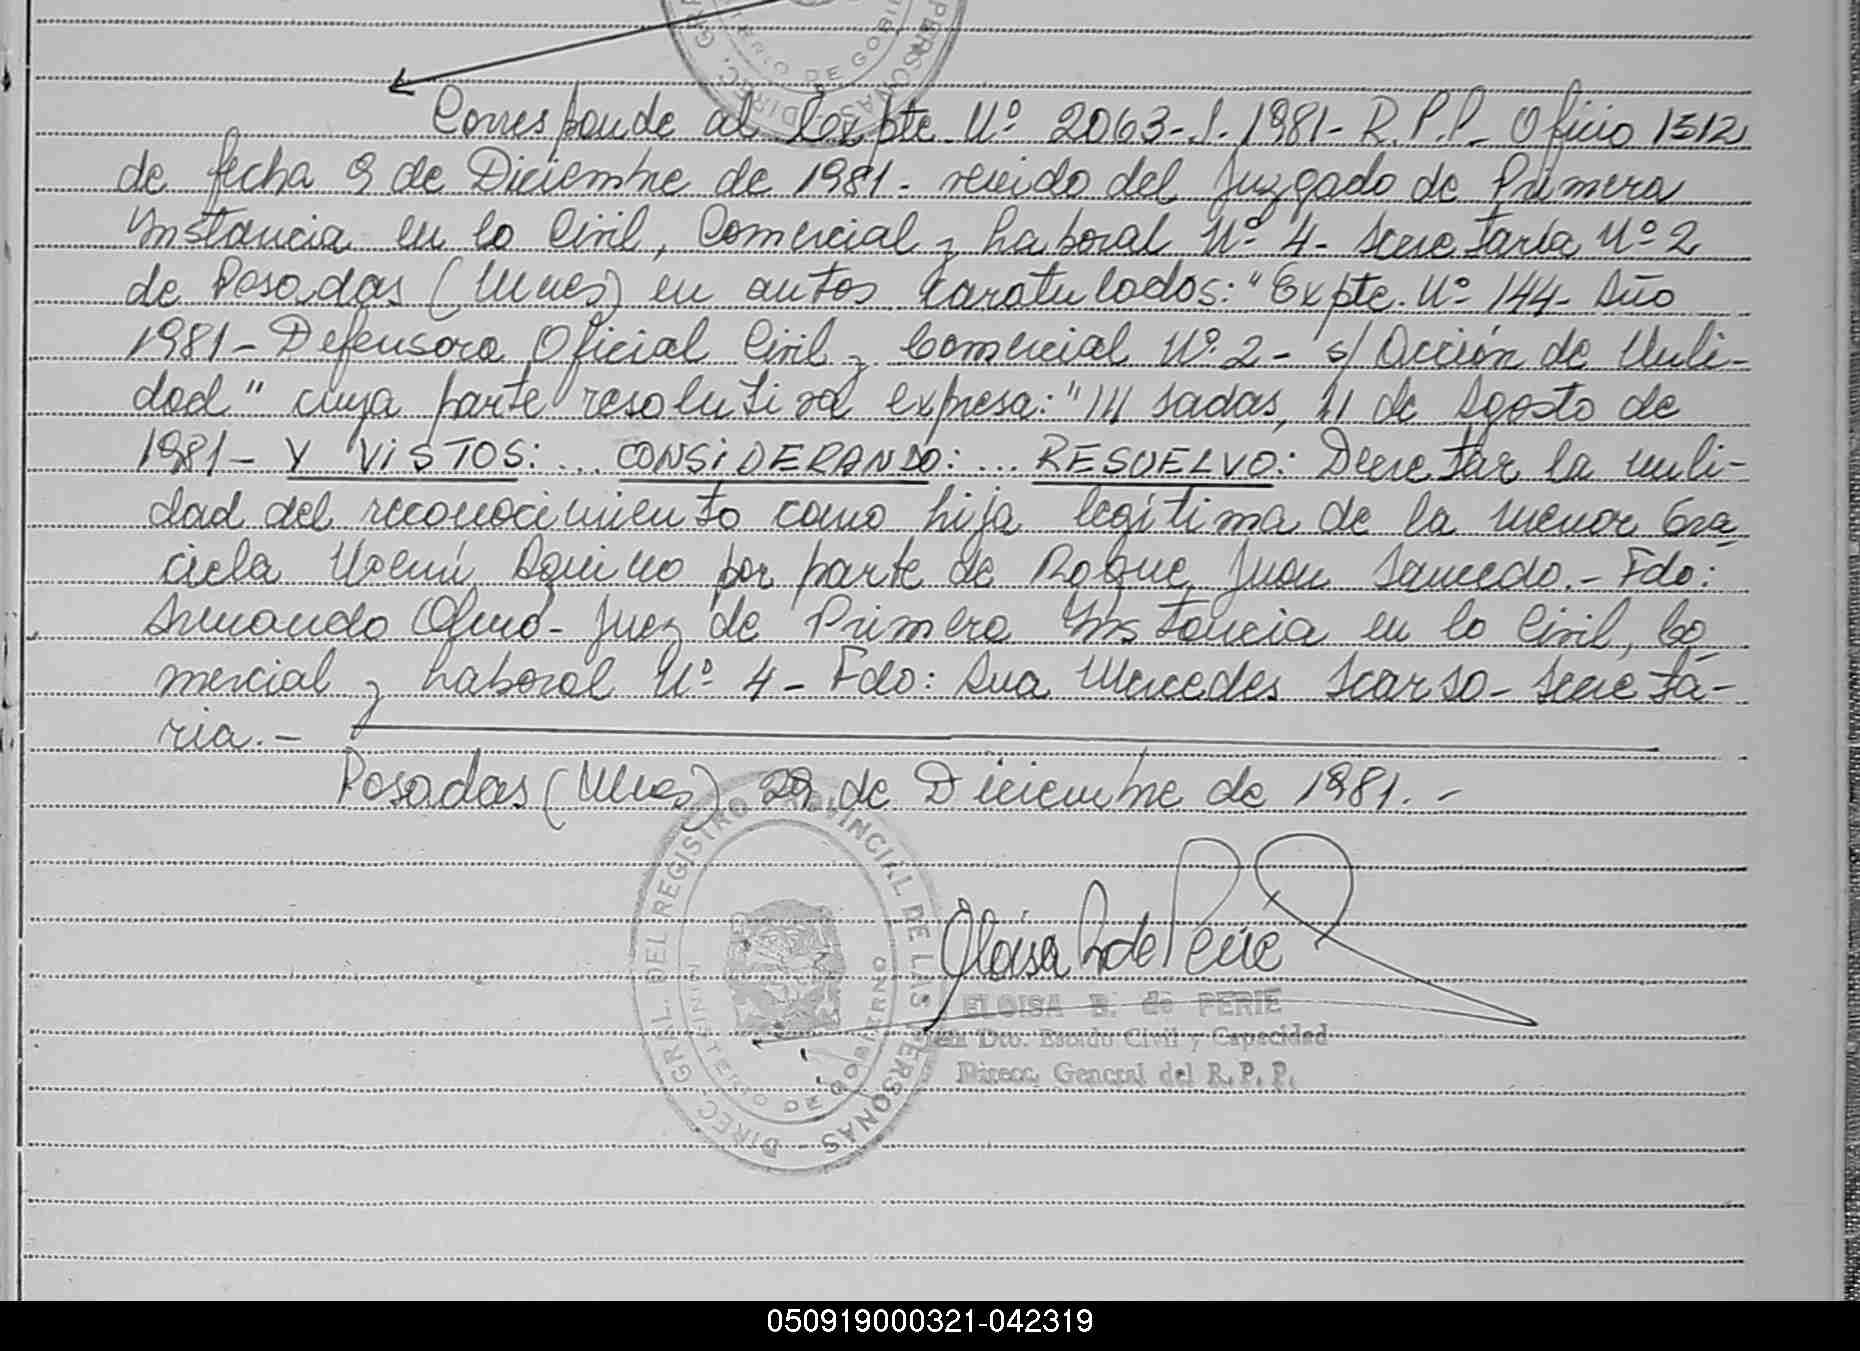 Corresponde al Expte. Nº 2063-I-1981- R.P.P- Oficio 1512
de fecha 9 de Diciembre de 1981- recido del Juzgado de Primera
Instancia en lo Civil, Comercial y Laboral Nº 4- Secretaría Nº 2
de Posadas (Mnes) en autos caratulados: "Expte. Nº 144- Año
1981- Defensora Oficial Civil y Comercial Nº 2- s/ Acción de Nuli-
dad" cuya parte resolutiva expresa: " sadas, 11 de Agosto de
1981- Y VISTOS: ... CONSIDERANDO: ... RESUELVO: Decretar la nuli-
dad del reconocimiento como hija legítima de la menor Gra
ciela Aquino por parte de Roque Juan Saucedo.- Fdo:
Armando Olmo- Juez de Primera Instancia en lo Civil, Co
mercial y Laboral Nº 4- Fdo: Ana Mercedes Scarso- Secretá-
ria.-
Posadas (Mnes) 29 de Diciembre de 1981.-
DIREC. GRAL. DEL REGISTRO PROVINCIAL DE LAS PERSONAS
MINISTERIO DE GOBIERNO
Eloisa B de Perie
ELOISA B. de PERIE
Dto. Estado Civil y Capacidad
Direcc. General del R. P. P.
050919000321-042319